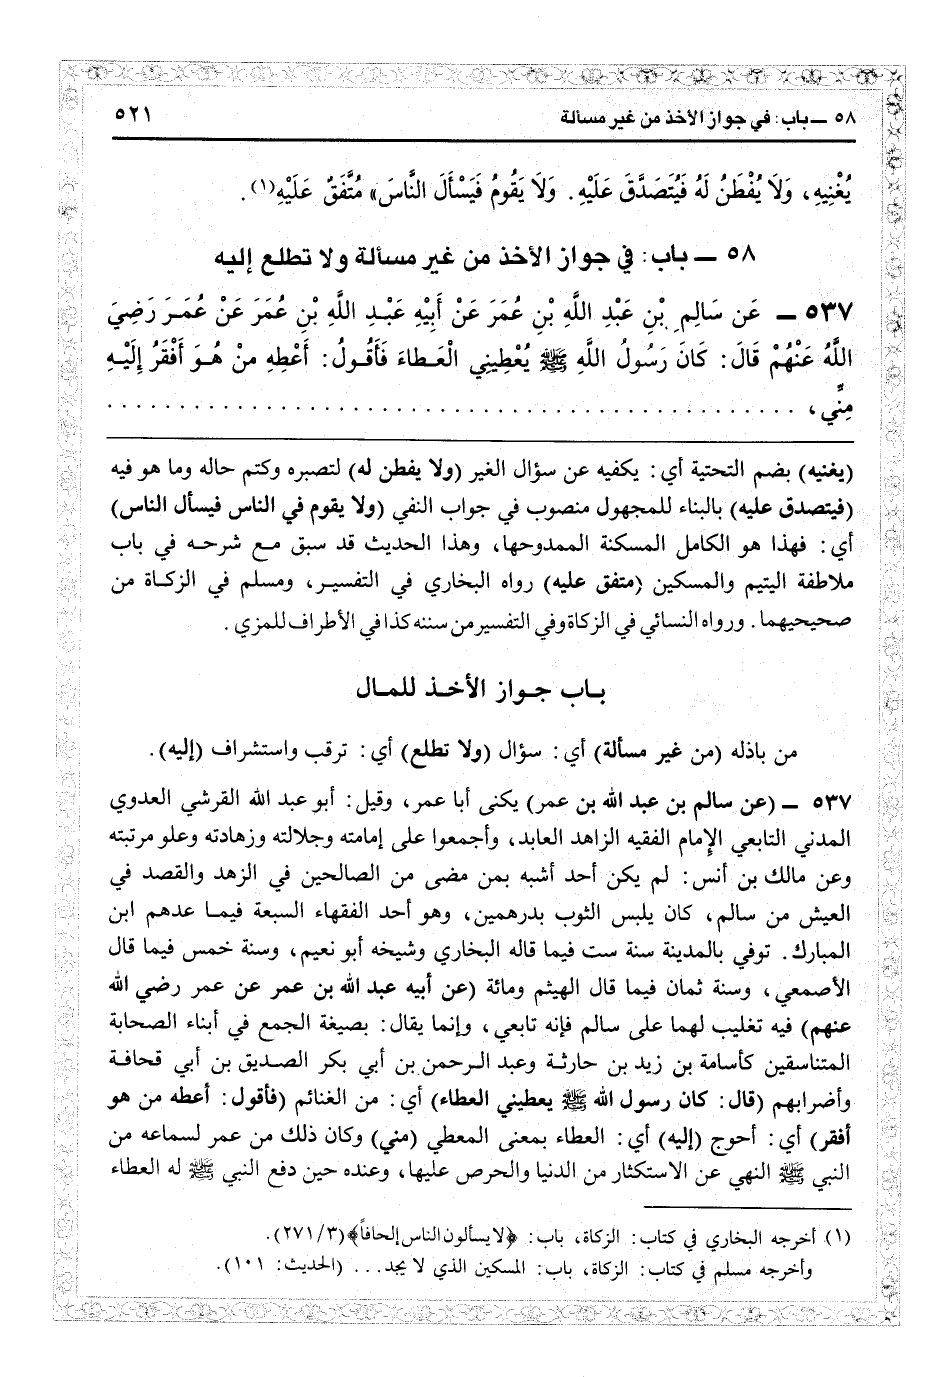 ٥٨ ــ باب: في جواز الأخذ من غير مسألة ٥٢١
يُغْنِيهِ، وَلَا يُفْطَنُ لَهُ فَيُتَصَدَّقَ عَلَيْهِ. وَلَا يَقُومُ فَيَسْأَلَ النَّاسَ» مُتَّفَقٌ عَلَيْهِ(١).
٥٨ ــ باب: في جواز الأخذ من غير مسألة ولا تطلع إليه
٥٣٧ ــ عَن سَالِمِ بْنِ عَبْدِ اللَّهِ بْنِ عُمَرَ عَنْ أَبِيهِ عَبْدِ اللَّهِ بْنِ عُمَرَ عَنْ عُمَرَ رَضِيَ
اللَّهُ عَنْهُمْ قَالَ: كَانَ رَسُولُ اللَّهِ ﷺ يُعْطِينِي الْعَطَاءَ فَأَقُولُ: أَعْطِهِ مِنْ هُوَ أَفْقَرُ إِلَيْهِ
مِنِّي، . . . . . . . . . . . . . . . . . . . . . . . . . . . . . . . . . . . . . . . . . . . . . . . . . .
(يغنيه) بضم التحتية أي: يكفيه عن سؤال الغير (ولا يفطن له) لتصبره وكتم حاله وما هو فيه
(فيتصدق عليه) بالبناء للمجهول منصوب في جواب النفي (ولا يقوم في الناس فيسأل الناس)
أي: فهذا هو الكامل المسكنة الممدوحها، وهذا الحديث قد سبق مع شرحه في باب
ملاطفة اليتيم والمسكين (متفق عليه) رواه البخاري في التفسير، ومسلم في الزكاة من
صحيحيهما. ورواه النسائي في الزكاة وفي التفسير من سننه كذا في الأطراف للمزي.
باب جواز الأخذ للمال
من باذله (من غير مسألة) أي: سؤال (ولا تطلع) أي: ترقب واستشراف (إليه).
٥٣٧ ــ (عن سالم بن عبد الله بن عمر) يكنى أبا عمر، وقيل: أبو عبد الله القرشي العدوي
المدني التابعي الإمام الفقيه الزاهد العابد، وأجمعوا على إمامته وجلالته وزهادته وعلو مرتبته
وعن مالك بن أنس: لم يكن أحد أشبه بمن مضى من الصالحين في الزهد والقصد في
العيش من سالم، كان يلبس الثوب بدرهمين، وهو أحد الفقهاء السبعة فيما عدهم ابن
المبارك. توفي بالمدينة سنة ست فيما قاله البخاري وشيخه أبو نعيم، وسنة خمس فيما قال
الأصمعي، وسنة ثمان فيما قال الهيثم ومائة (عن أبيه عبد الله بن عمر عن عمر رضي الله
عنهم) فيه تغليب لهما على سالم فإنه تابعي، وإنما يقال: بصيغة الجمع في أبناء الصحابة
المتناسقين كأسامة بن زيد بن حارثة وعبد الرحمن بن أبي بكر الصديق بن أبي قحافة
وأضرابهم (قال: كان رسول الله ﷺ يعطيني العطاء) أي: من الغنائم (فأقول: أعطه من هو
أفقر) أي: أحوج (إليه) أي: العطاء بمعنى المعطي (مني) وكان ذلك من عمر لسماعه من
النبي ﷺ النهي عن الاستكثار من الدنيا والحرص عليها، وعنده حين دفع النبي ﷺ له العطاء
(١) أخرجه البخاري في كتاب: الزكاة، باب: ﴿لا يسألون الناس إلحافاً﴾ (٣/ ٢٧١).
وأخرجه مسلم في كتاب: الزكاة، باب: المسكين الذي لا يجد... (الحديث: ١٠١).